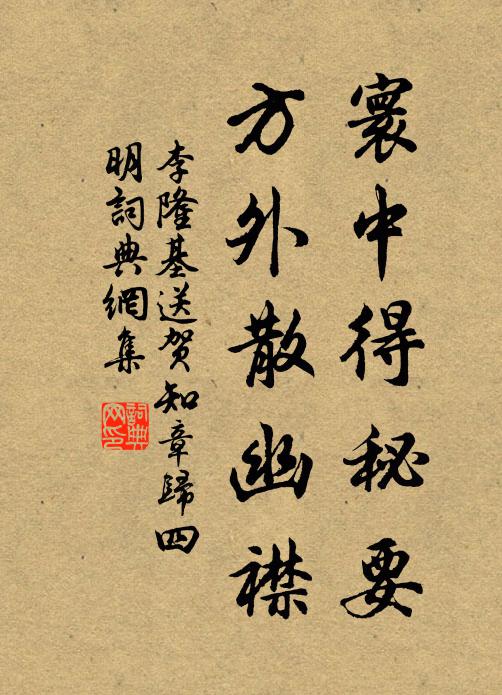 寰中得秘要
方外散幽襟
李隆基送賀知章歸四
明詞典網集
詞典
网印